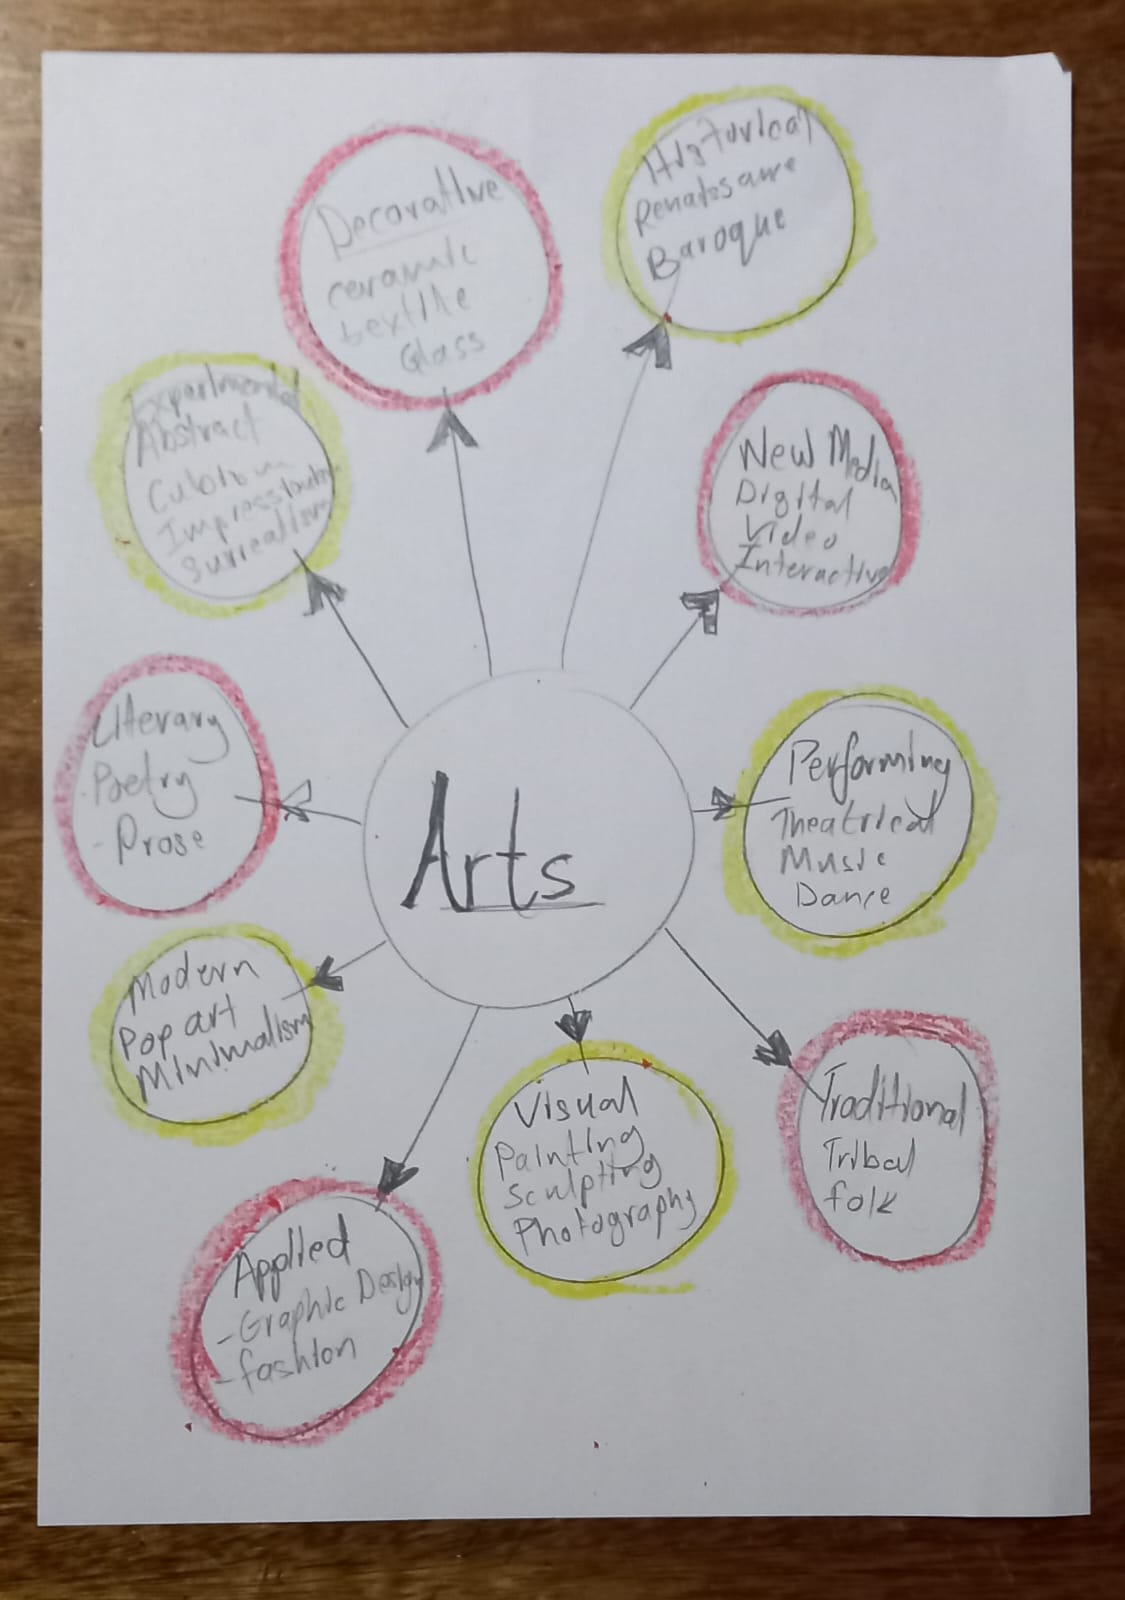 Decorative
ceramic
textile
Glass
Historical
Renaissance
Baroque
Experimental
Abstract
Cubism
Impressionism
Surrealism
New Media
Digital
Video
Interactive
Literary
-Poetry
-Prose
Arts
Performing
Theatrical
Music
Dance
Modern
Pop art
Minimalism
Visual
Painting
Sculpting
Photography
Traditional
Tribal
folk
Applied
-Graphic Design
-fashion